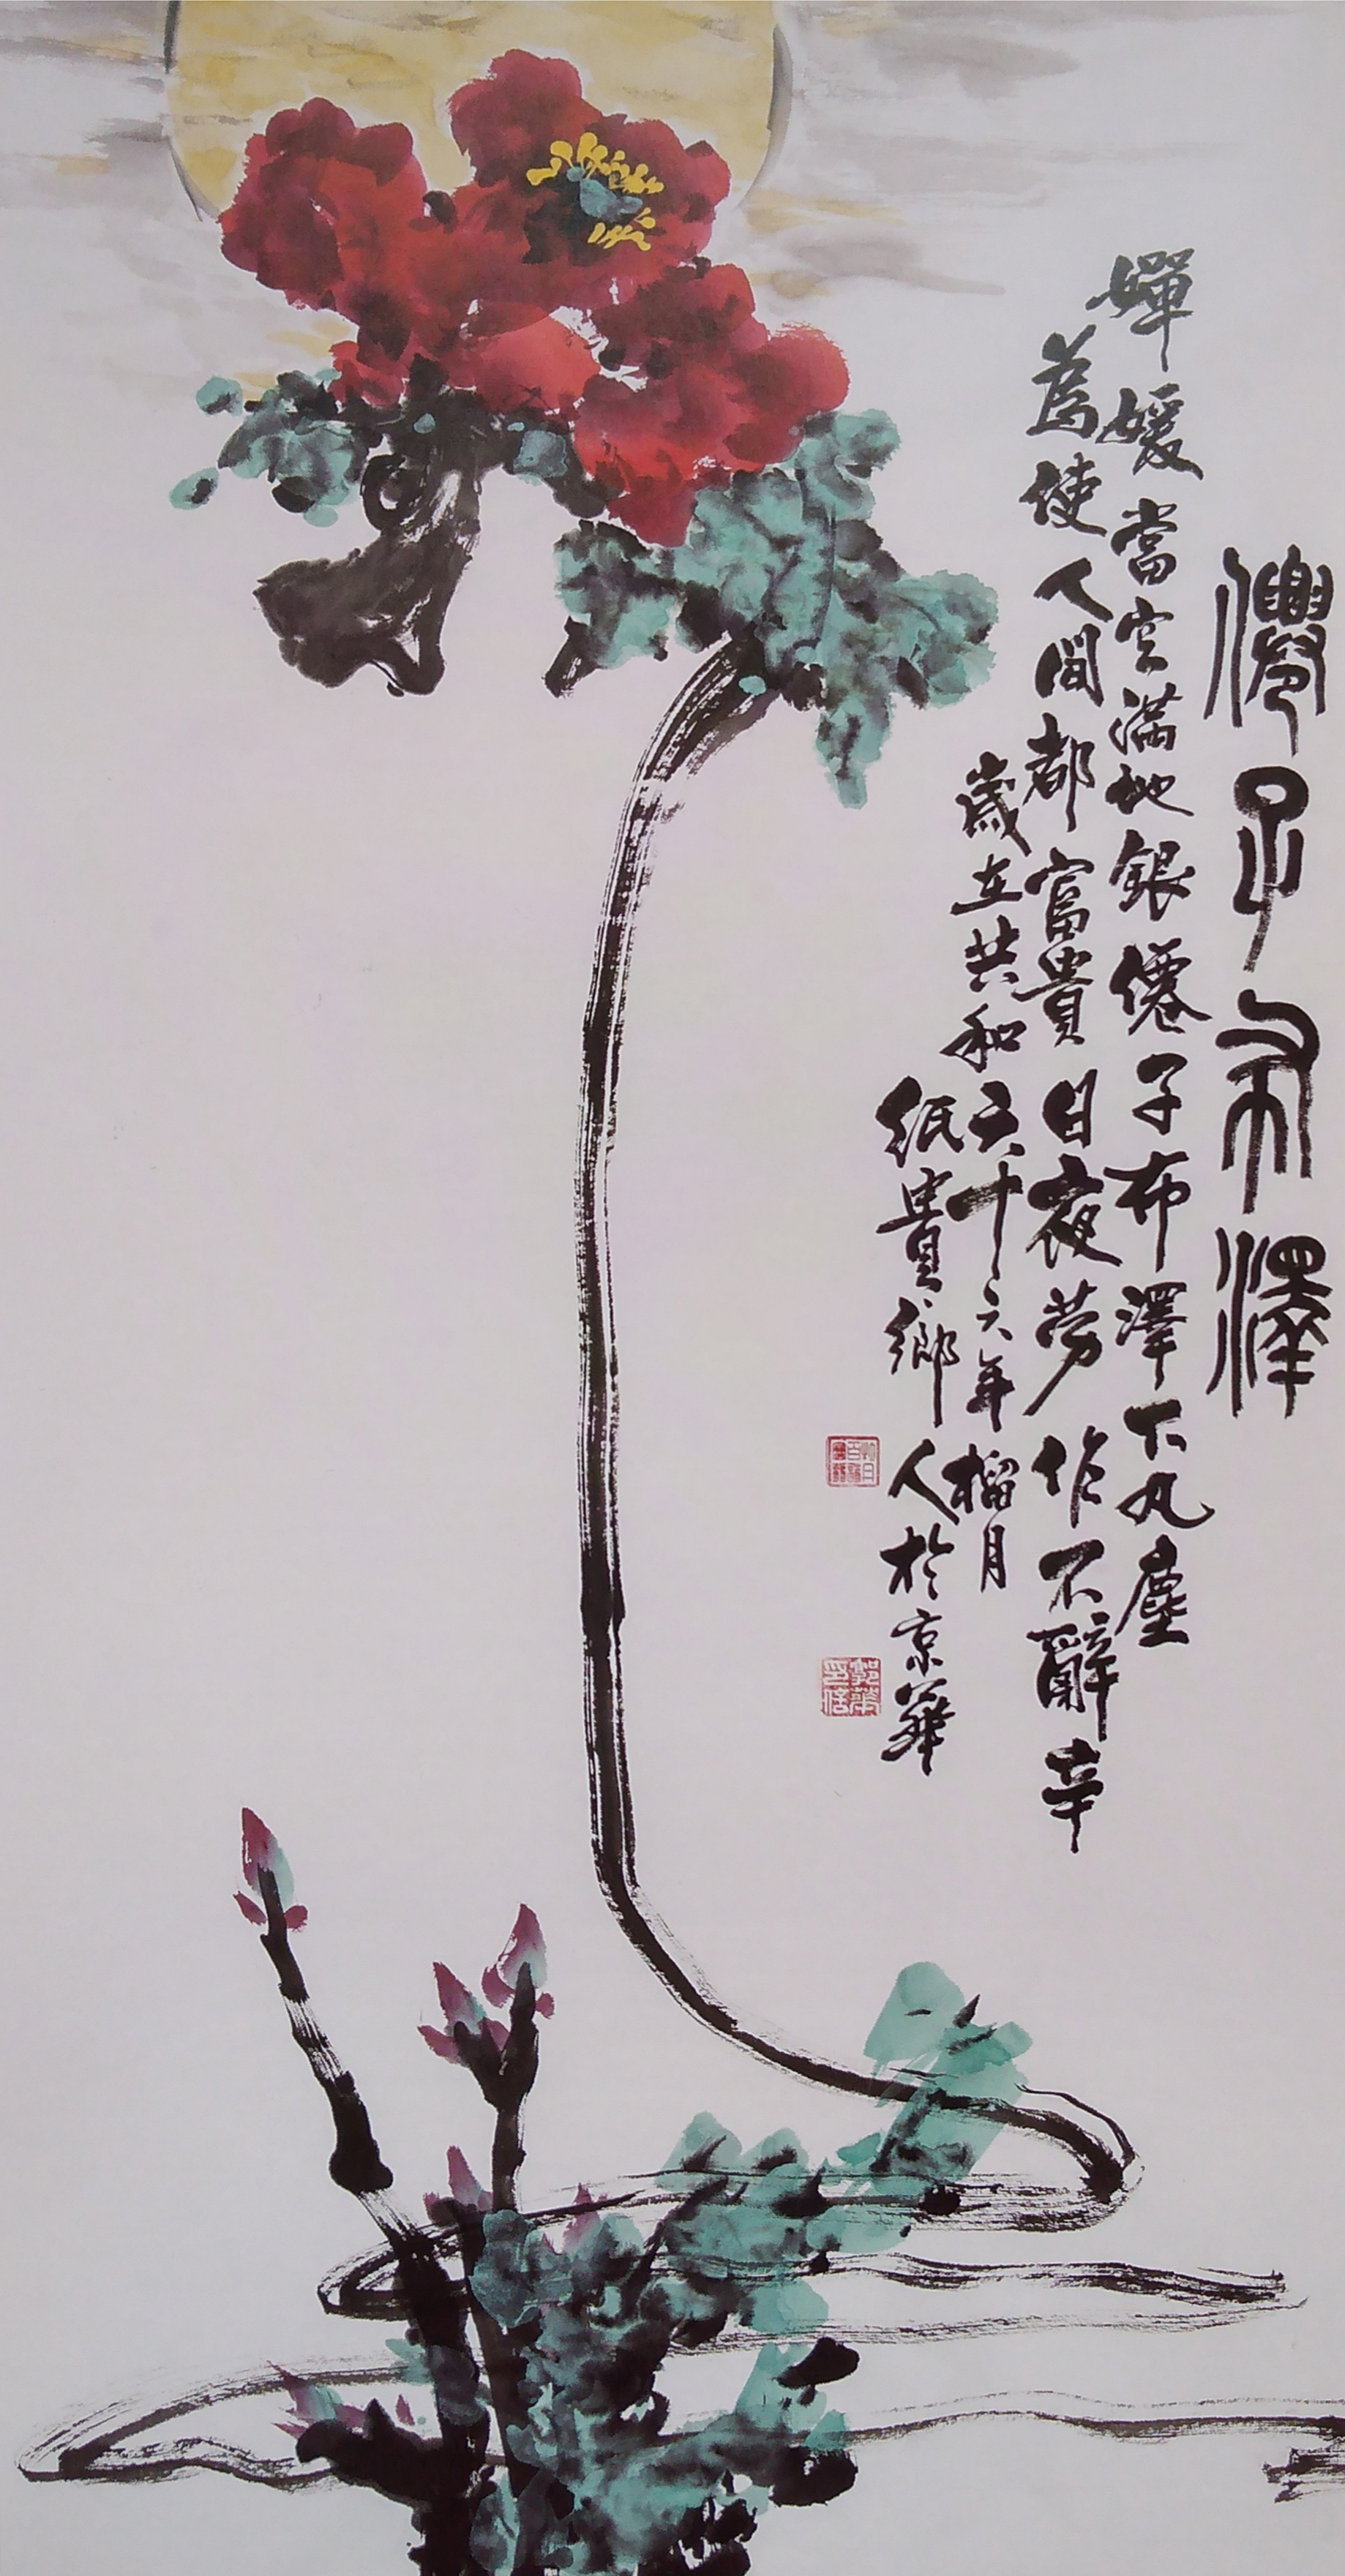 僊子布澤
嬋媛當空滿地銀僊子布澤下凡塵
為使人間都富貴日夜勞作不辭辛
歲在共和六十六年榴月
紙貴鄉人於京華